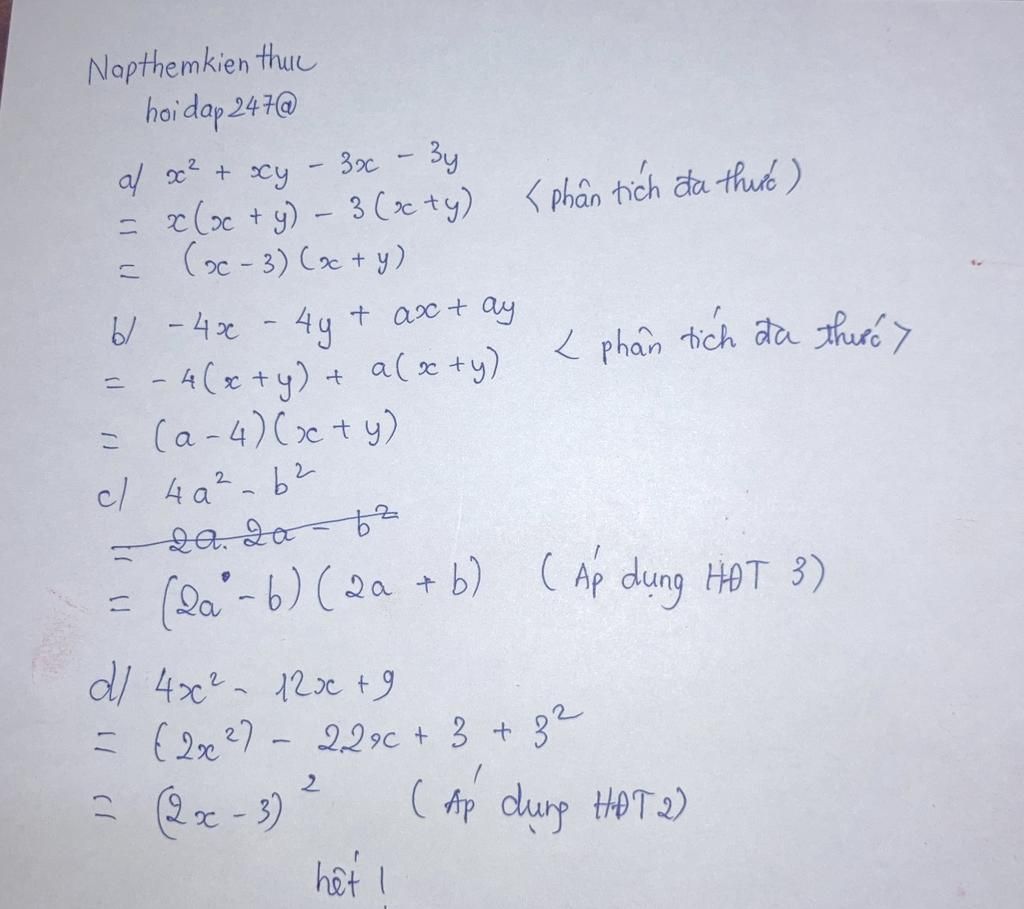 Napthemkienthuc
hoidap247@
a/ x² + xy - 3x - 3y
= x(x + y) - 3(x+y) < phân tích đa thức)
= (x - 3) (x + y)
b/ - 4x - 4y + ax + ay
= - 4(x + y) + a(x + y) < phân tích đa thức >
= (a - 4)(x + y)
c/ 4a² - b²
= 2a. 2a - b²
= (2a - b) (2a + b) ( Áp dụng HĐT 3)
d/ 4x² - 12x + 9
= (2x²) - 2.2x + 3 + 3²
= (2x - 3)² ( Áp dụng HĐT 2)
hết !